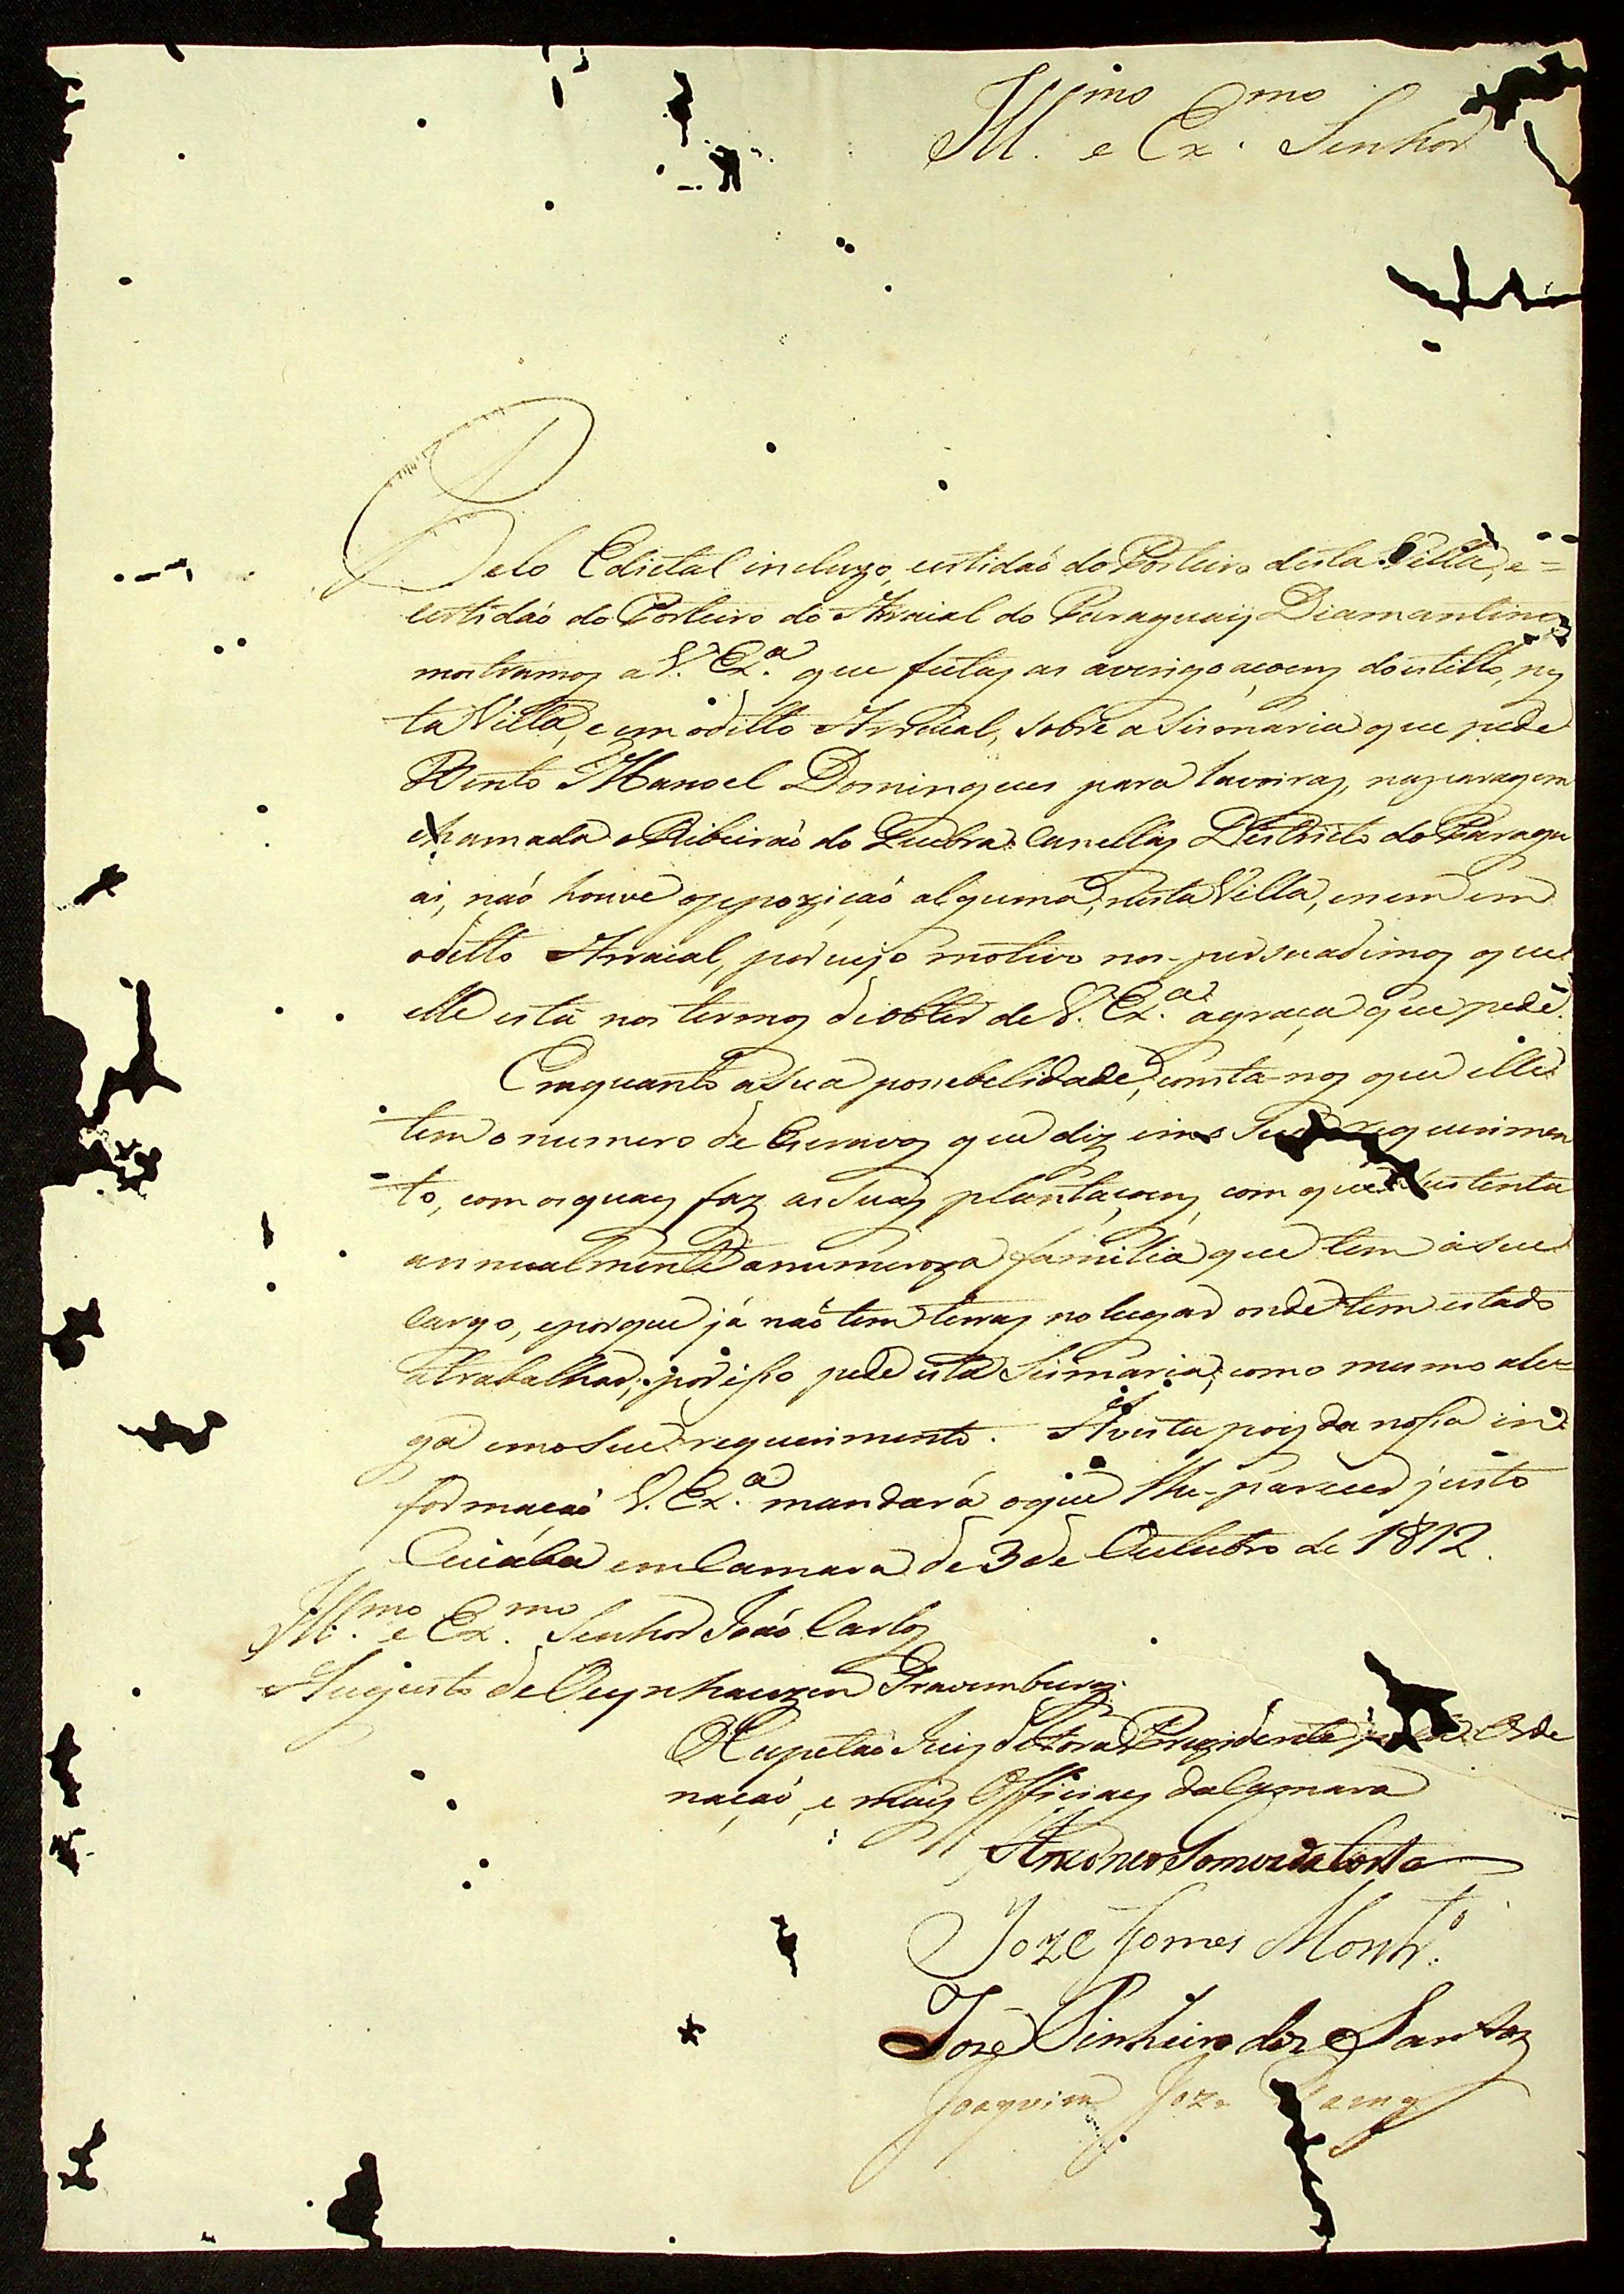 Ill.mo e Ex.mo Senhor
Pelo Edictal incluzo, certidaõ do Porteiro desta Villa, e =
certidaõ do Porteiro do Arraial do Paraguaÿ Diamantino
mostramos a V. Ex.a que feitas as averigoaçoens do estillo, nes
ta Villa, e em o ditto Arraial, sobre a Sismaria que pede
Bento Manoel Domingues para lavoiras, na paragem
chamada o Ribeiraõ do Quebra Canellas Destricto do Paragu
ai, naõ houve oppoziçaõ alguma, nesta Villa, e nem em
o ditto Arraial, por cujo motivo nos-persuadimos que
elle está nos termos de obter de V. Ex.a a graça que pede.
Em quanto a sua possebelidade, consta-nos que elle
tem o numero de Escravos que diz em o Seu requerimen
to, com os quaes faz as Suas plantaçoens, com que Sustenta
annualmente a numeroza familia que tem a seu
cargo, e porque já naõ tem terras no lugar onde tem estado
a trabalhar, por isso pede esta Sismaria, como mesmo ale=
ga em o Seu requerimento. A vista pois da nossa in
formaçaõ V. Ex.a mandará o que lhe-parecer justo
Cuiába em Camara de 3 de Outubro de 1812.
Ill.mo e Ex.mo Senhor Joaõ Carlos
Augusto de Oeynhauzen Gravemburg.
O Capetaõ Juiz de Fora Prezidente Orde
naçaõ, e mais Officiaes da Camara
Gomes da Costa
Joze Gomes Montr.o
Joze Pinheiro dos Santos
Joaquim Joze